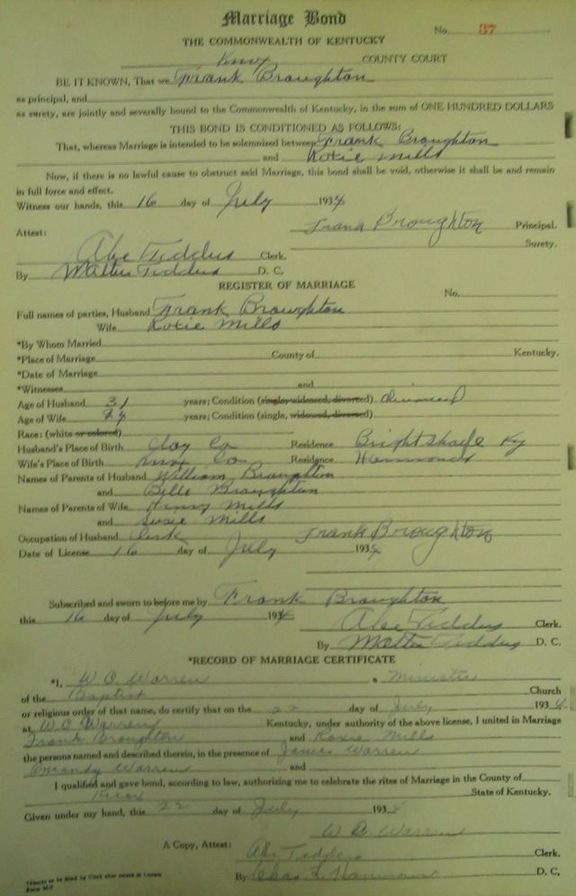 Marriage Bond
No. 37
THE COMMONWEALTH OF KENTUCKY
Knox COUNTY COURT
BE IT KNOWN, That we Frank Broughton
as principal, and
as surety, are jointly and severally bound to the Commonwealth of Kentucky, in the sum of ONE HUNDRED DOLLARS
THIS BOND IS CONDITIONED AS FOLLOWS:
That, whereas Marriage is intended to be solemnized between Frank Broughton
and Roxie Mills
Now, if there is no lawful cause to obstruct said Marriage, this bond shall be void, otherwise it shall be and remain
in full force and effect.
Witness our hands, this 16 day of July 1934
Frank Broughton Principal.
Attest: Surety.
Abe Tiddus Clerk.
By Walter Tiddus D. C.
REGISTER OF MARRIAGE
No.
Full names of parties, Husband Frank Broughton
Wife Roxie Mills
*By Whom Married
*Place of Marriage County of Kentucky.
*Date of Marriage
*Witnesses and
Age of Husband 31 years; Condition (single, widowed, divorced) divorced
Age of Wife 24 years; Condition (single, widowed, divorced)
Race: (white or colored)
Husband's Place of Birth Clay Co Residence Brightshade Ky
Wife's Place of Birth Knox Co Residence Hammonds
Names of Parents of Husband William Broughton
and Belle Broughton
Names of Parents of Wife Henry Mills
and Susie Mills
Occupation of Husband Frank Broughton
Date of License 16 day of July 1934
Subscribed and sworn to before me by Frank Broughton
this 16 day of July 1934 Abe Tiddus Clerk.
By Walter Tiddus D. C.
*RECORD OF MARRIAGE CERTIFICATE
*I, W C Warren a Minister
of the Baptist Church
or religious order of that name, do certify that on the 22 day of July 1934
at W C Warren Kentucky, under authority of the above license, I united in Marriage
Frank Broughton and Roxie Mills
the persons named and described therein, in the presence of James Warren
Amandy Warren and
I qualified and gave bond, according to law, authorizing me to celebrate the rites of Marriage in the County of
Knox State of Kentucky.
Given under my hand, this 22 day of July 1934
W C Warren
A Copy, Attest: Abe Tiddus Clerk.
By Chas. L. Hammons D. C.